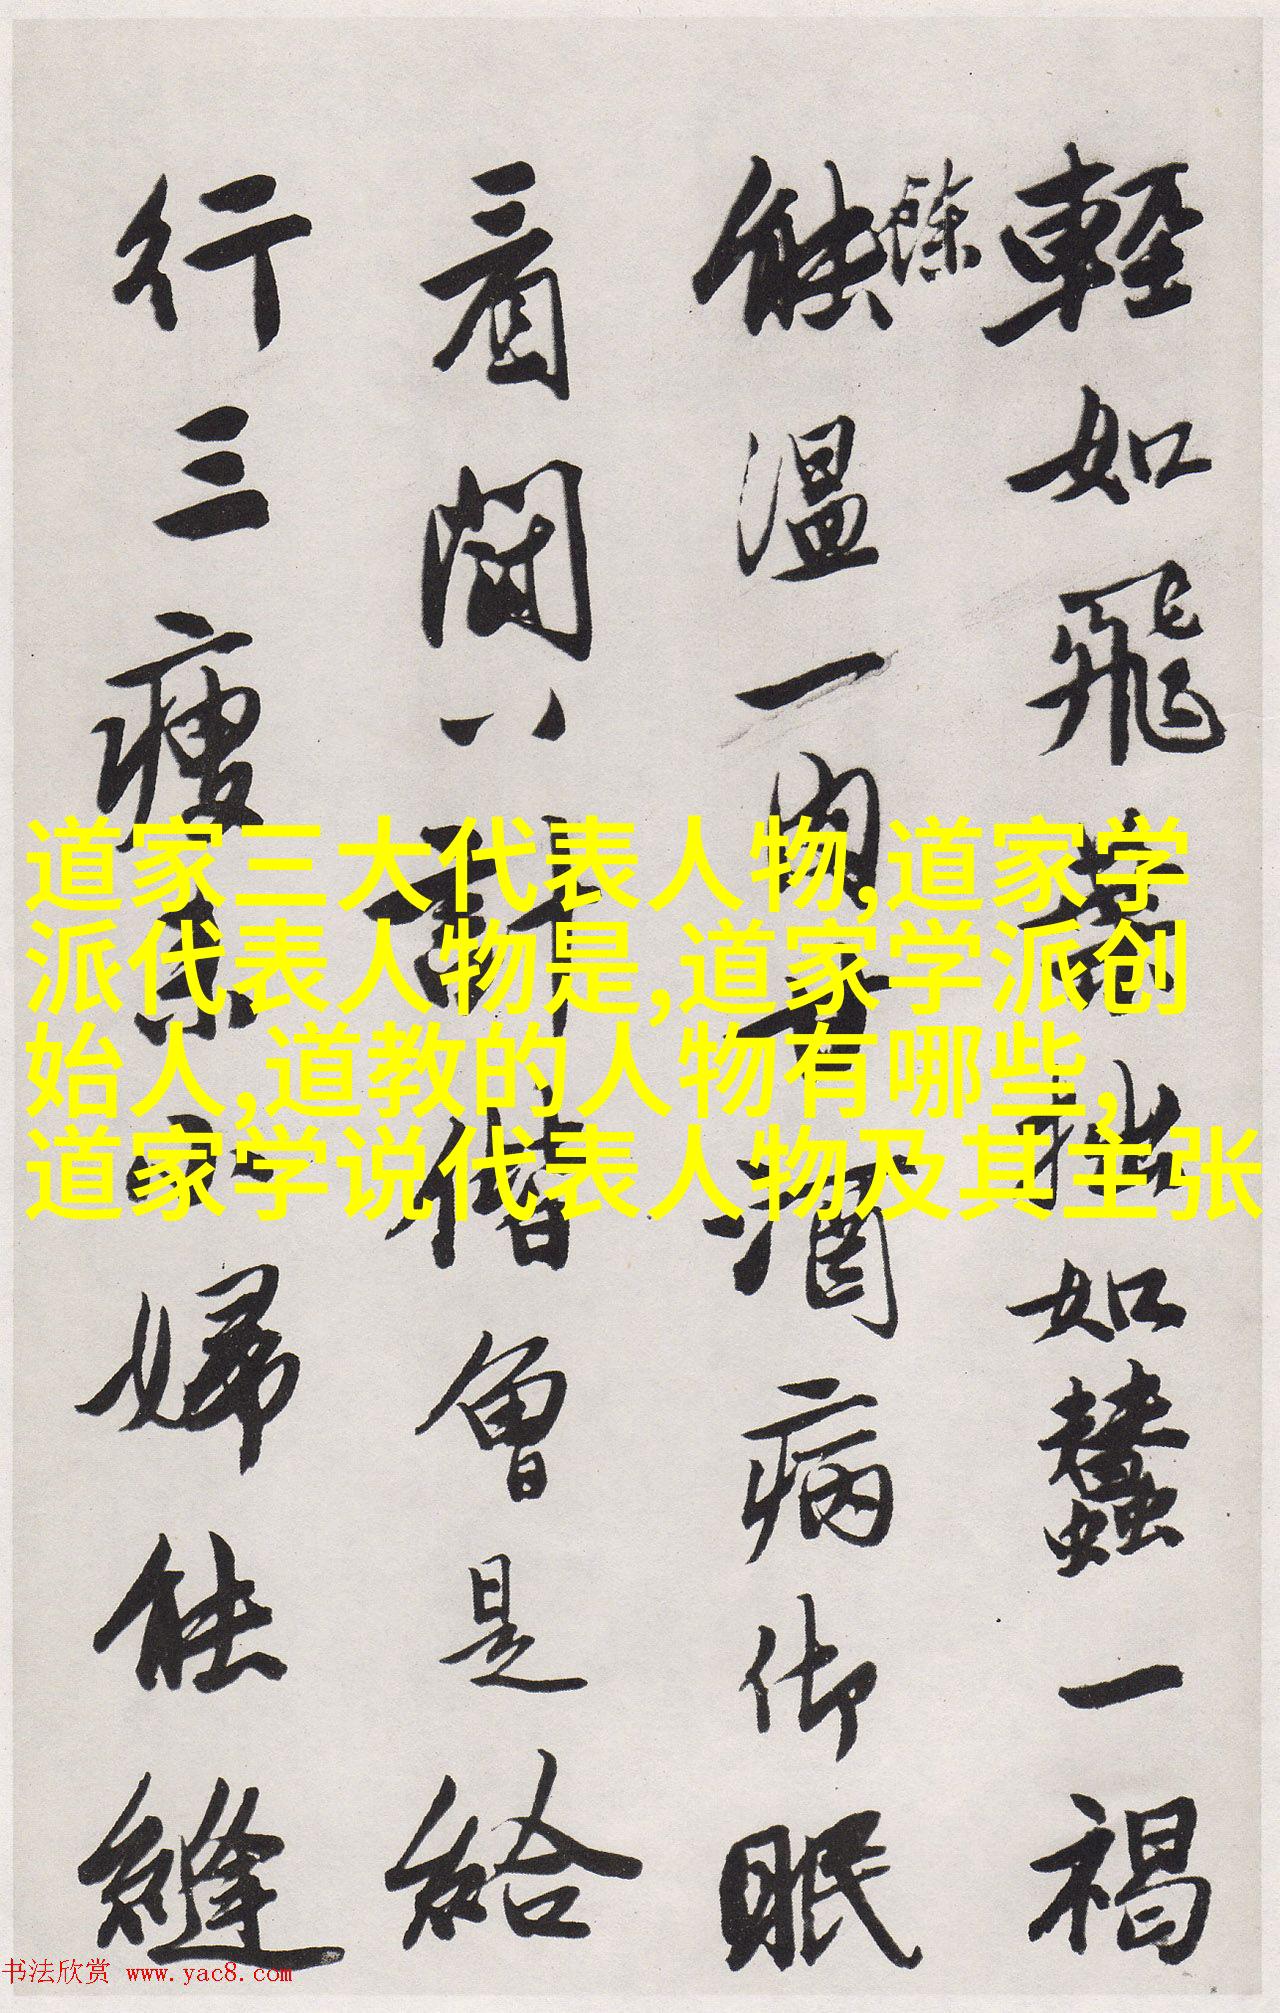 輕如飛 拙如蠶一褐
餘
能温一肉 酒病御眠
看閱八 計偕魯是給
行三瘦 婦能縫
道家三大代表人物,道家学
派代表人物是,道家学派创
始人,道教的人物有哪些,
道家学说代表人物及其主张
书法欣赏 www.yac8.com